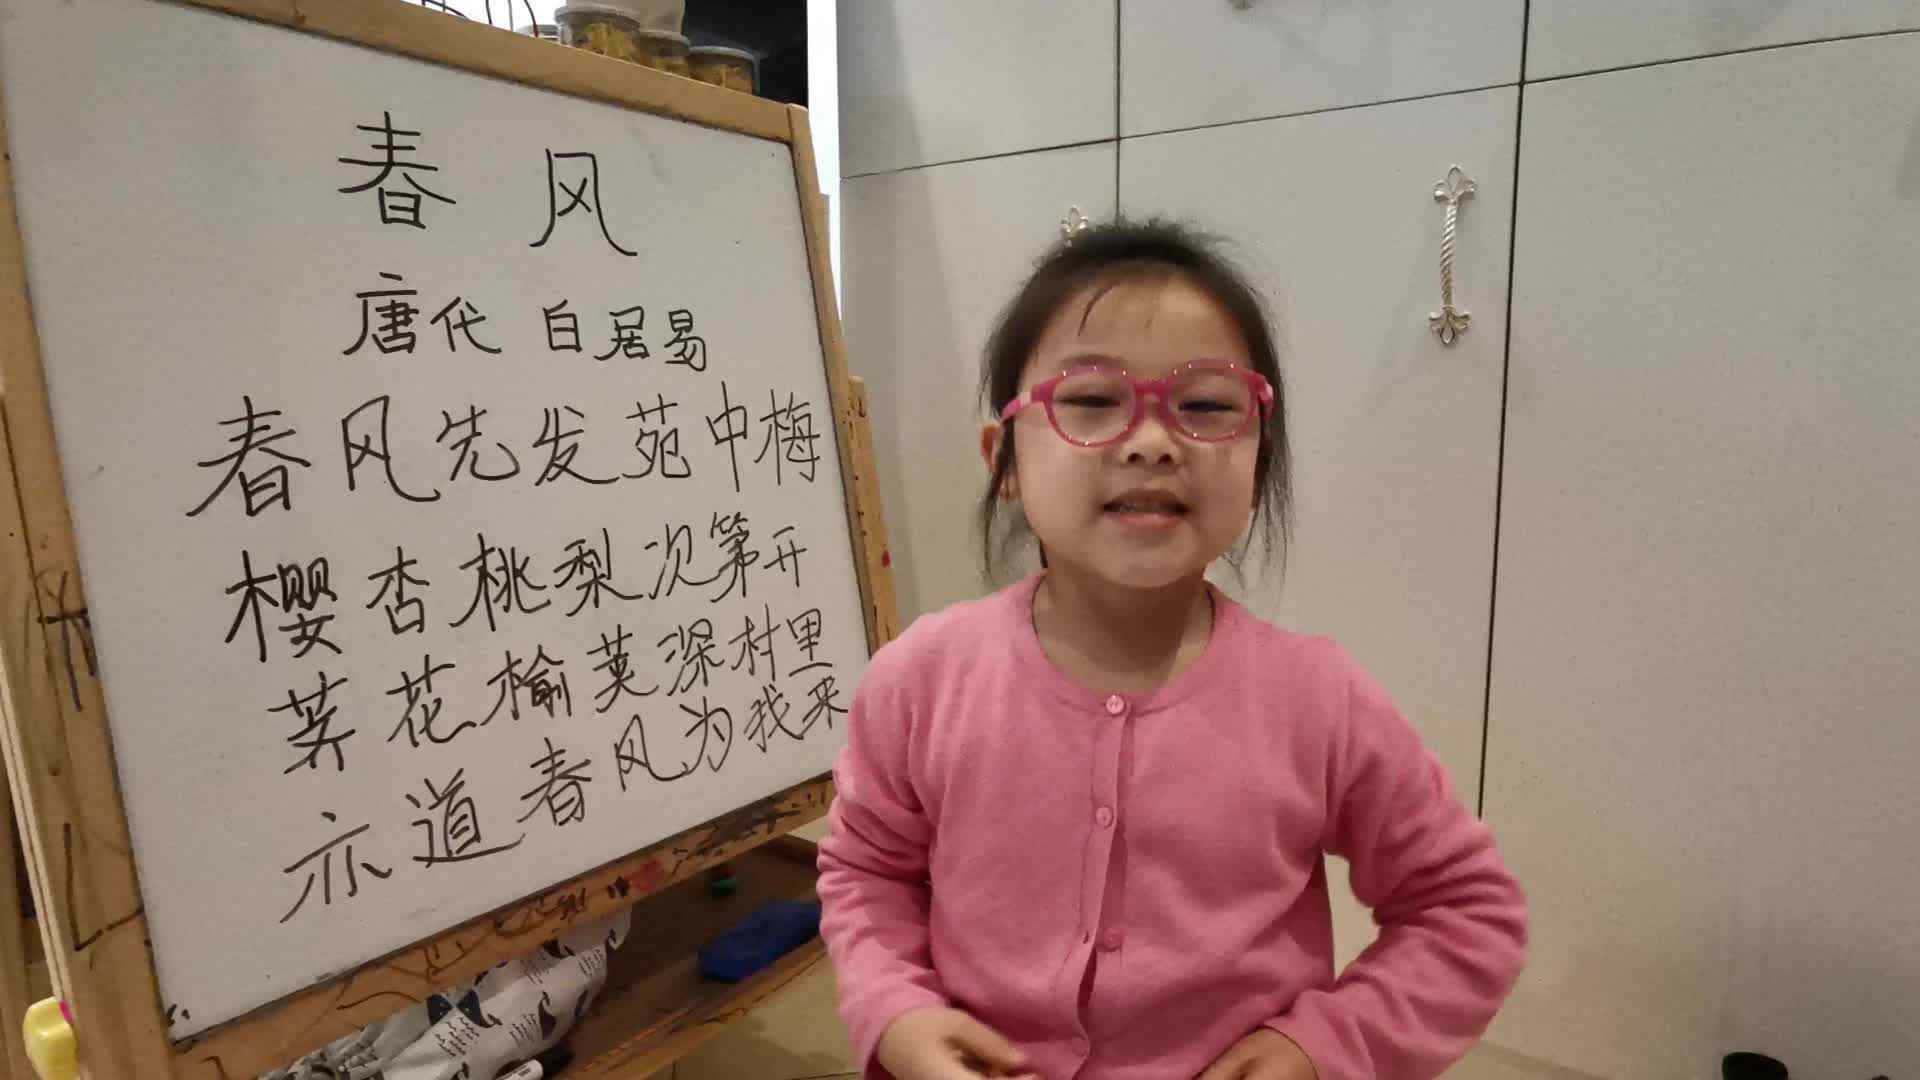 春风
唐代 白居易
春风先发苑中梅
樱杏桃梨次第开
荠花榆荚深村里
亦道春风为我来